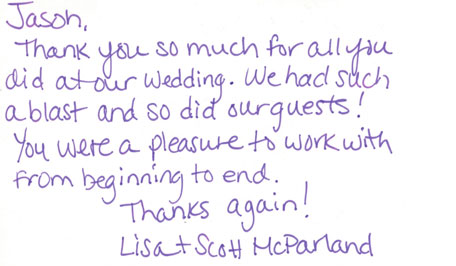 Jason,
Thank you so much for all you
did at our wedding. We had such
a blast and so did our guests!
You were a pleasure to work with
from beginning to end.
Thanks again!
Lisa + Scott McParland